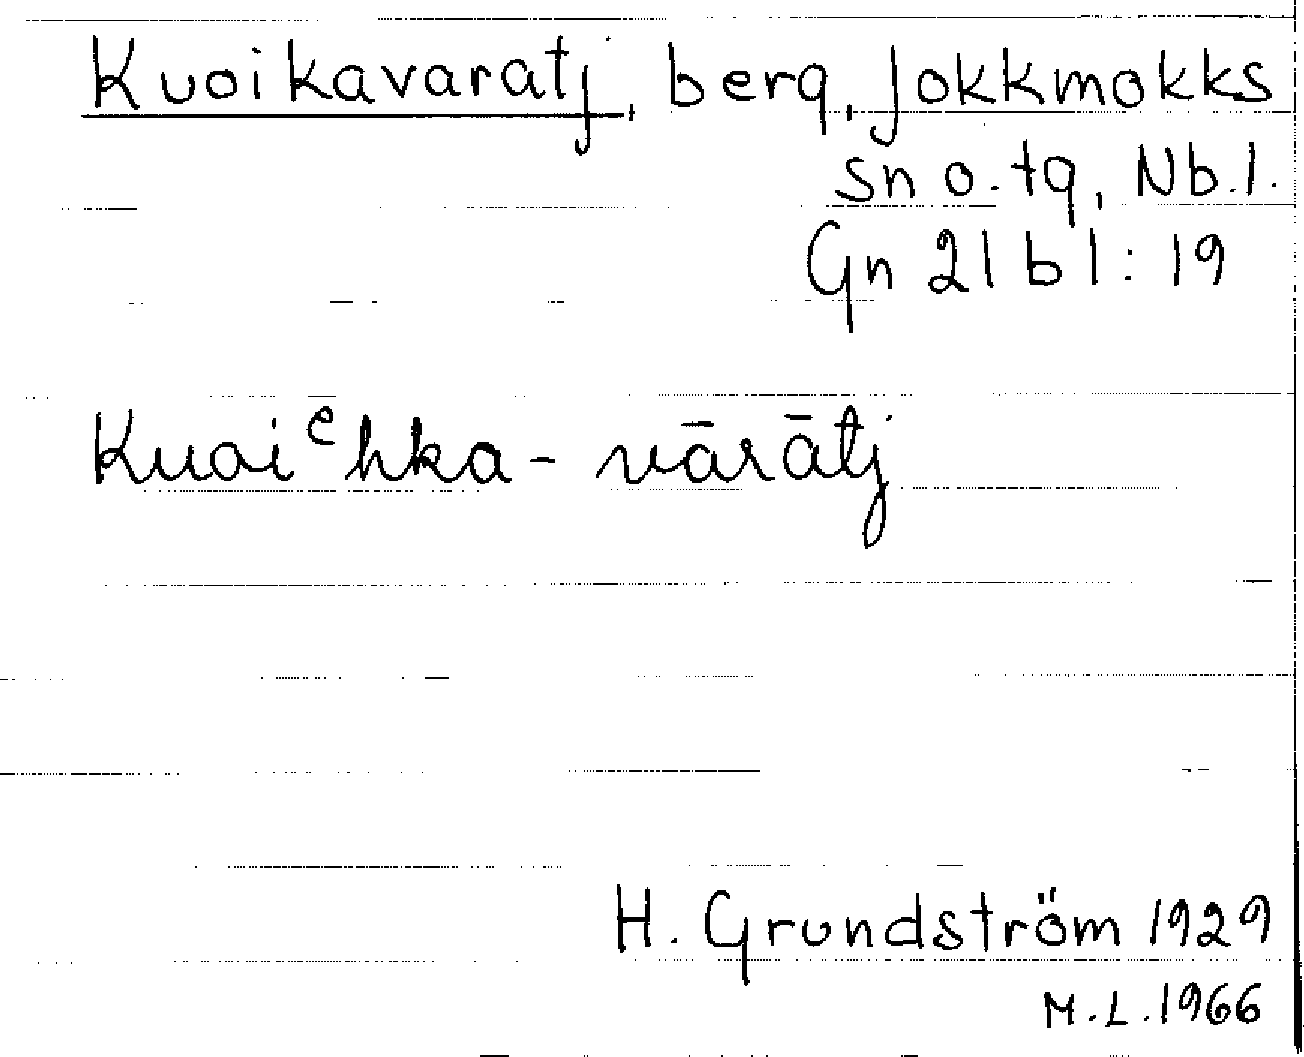 Kuoikavaratj, berg, Jokkmokks
sn o. tg, Nb.l.
Gn 21 b l: 19
Kuoiᵉhka-vārātj
H. Grundström 1929
M.L. 1966